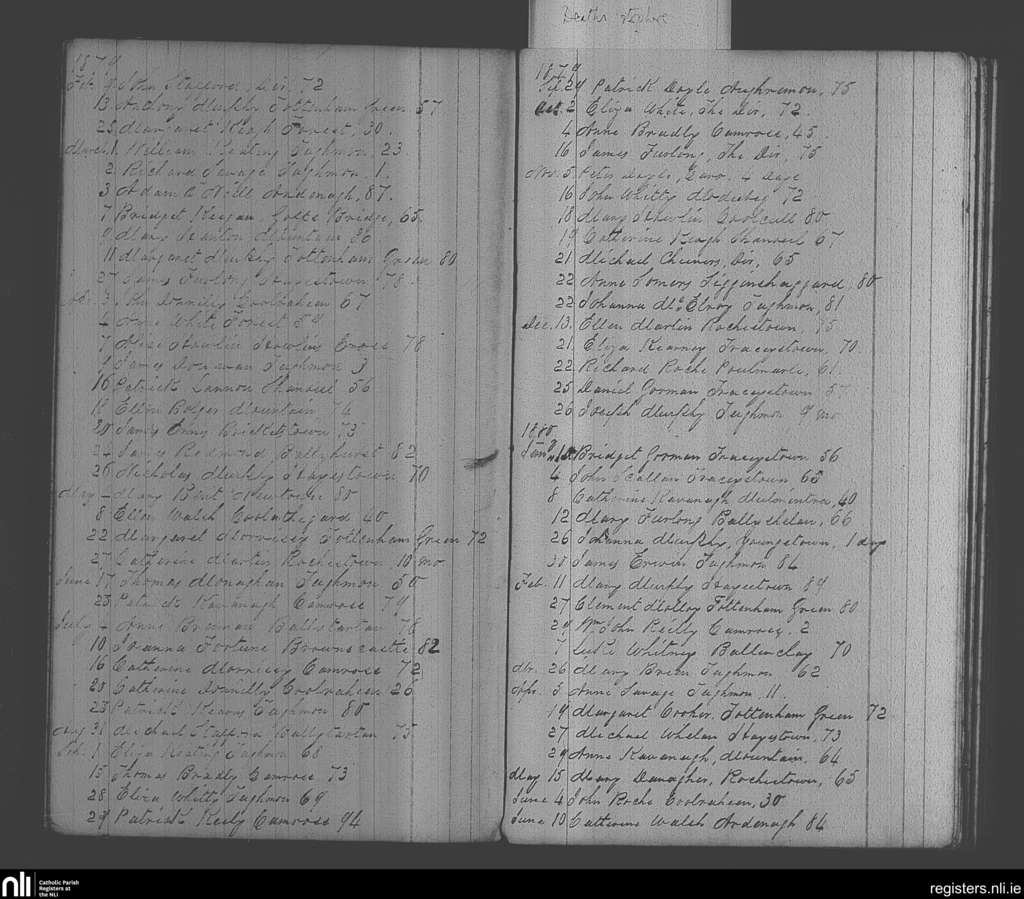 Deaths
1879
Feb. 9 John Stafford Dir, 72
13 Tottenham Green 57
25 Margaret Keogh Forrest, 30.
March 1. William Keating Taghmon, 23.
2 Richard Savage Taghmon, 1.
3 Adam O'Neill Ardenagh, 87.
7 Bridget Keegan, Bridge, 65.
9 Mary Mountain 30
11 Margaret Murphy Tottenham Green 80
27 James Furlong Hayestown, 78.
Apr. 3 John Donnelly Coolraheen 67
4 Anne White Forest
7 Howlin Howlin Cross 78
9 James Taghmon 3
16 Patrick Lannon Shanoul 56
18 Ellen Bolger Mountain 76
20 James 73
24 James Redmond 82
26 Nicholas Murphy Hayestown 70
May – Mary Newtown 50
8 Ellen Walsh 40
22 Margaret Morrissey Tottenham Green 72
27 Catherine Martin Rochestown 10 mo
June 17 Thomas Monaghan Taghmon 50
23 Patrick Kavanagh Camrose 79
July – Anne Brennan 76
10 Johanna Fortune Brownscastle 82
16 Catherine Morrissey Camrose 72
20 Catherine Donnelly Coolraheen 26
23 Patrick Kearns Taghmon 80
Aug 31 Michael Stafford Ballytartan 75
Sep. 1 Eliza Keating Taghmon 68
15 Thomas Bradly Camrose 73
28 Eliza Whitty Taghmon 69
29 Patrick Reily Camrose 94
1879
29 Patrick Doyle Aughremon, 75
Oct. 2 Eliza White, The Dir, 72.
4 Anne Bradly Camrose, 45.
16 James Furlong, The Dir, 75
Nov. 5 Peter Doyle, 4 days
16 John Whitty 72
18 Mary Howlin Coolcull 80
19 Catherine Keogh Shanoul 67
21 Michael Cheevers, Dir, 65
22 Anne Somers Sigginshaggard, 80
22 Johanna McElroy Taghmon, 81
Dec. 13. Ellen Martin Rochestown, 75
21. Eliza Kearney Traceystown, 70.
22 Richard Roche Poulmarle, 61.
25 Daniel Gorman Traceystown 57
26 Joseph Murphy Taghmon 9 mo
1880
Jany 1 Bridget Gorman Traceystown 56
4 John Callan Traceystown 65
8 Catherine Kavanagh 40
12 Mary Furlong Ballyshelan, 66
26 Johanna Murphy, Youngstown, 1 day
30 James Erwin Taghmon 84
Feb. 11 Mary Murphy Hayestown 89
27 Clement Molloy Tottenham Green 80
29 Wm John Reilly Camrose, 2
7 Luke Whitney Ballinclay 70
Mr. 26 Mary Breen Taghmon 62
Apr. 5 Anne Savage Taghmon, 11.
19 Margaret Cooker. Tottenham Green 72
27 Michael Whelan Hayestown, 73
29 Anne Kavanagh, Mountain, 64
May 15 Mary Danagher, Rochestown, 65
June 4 John Roche Coolraheen, 30
June 10 Catherine Walsh Ardenagh 84
nli Catholic Parish
Registers at
the NLI
registers.nli.ie